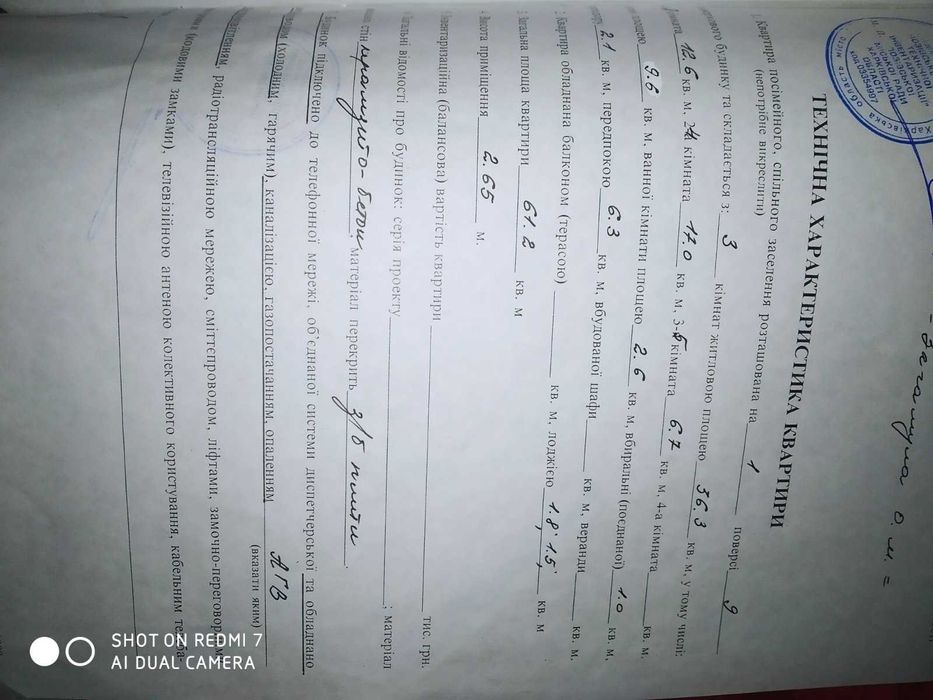 - Загальна о.м. =
ТЕХНІЧНА ХАРАКТЕРИСТИКА КВАРТИРИ
1. Квартира посімейного, спільного заселення розташована на 1 поверсі 9
(непотрібне викреслити)
будинку та складається з: 3 кімнат житловою площею 36.3 кв. м, у тому числі:
12.6 кв. м, 2-а кімната 17.0 кв. м, 3-я кімната 6.7 кв. м, 4-а кімната кв. м,
площею 9.6 кв. м, ванної кімнати площею 2.6 кв. м, вбиральні (поєднаної) 1.0 кв. м,
2.1 кв. м, передпокою 6.3 кв. м, вбудованої шафи кв. м, веранди кв. м.
2. Квартира обладнана балконом (терасою) кв. м, лоджією 1.8; 1.5; кв. м
3. Загальна площа квартири 61.2 кв. м
4. Висота приміщення 2.65 м.
Інвентаризаційна (балансова) вартість квартири тис. грн.
Загальні відомості про будинок: серія проекту ; матеріал
стін керамзито-бетон, матеріал перекрить з/б плити.
будинок підключено до телефонної мережі, об'єднаної системи диспетчерської та обладнано
(холодним, гарячим), каналізацією, газопостачанням, опаленням АГВ
(вказати яким)
радіотрансляційною мережею, сміттєпроводом, ліфтами, замочно-переговорним
(кодовими замками), телевізійною антеною колективного користування, кабельним
SHOT ON REDMI 7
AI DUAL CAMERA